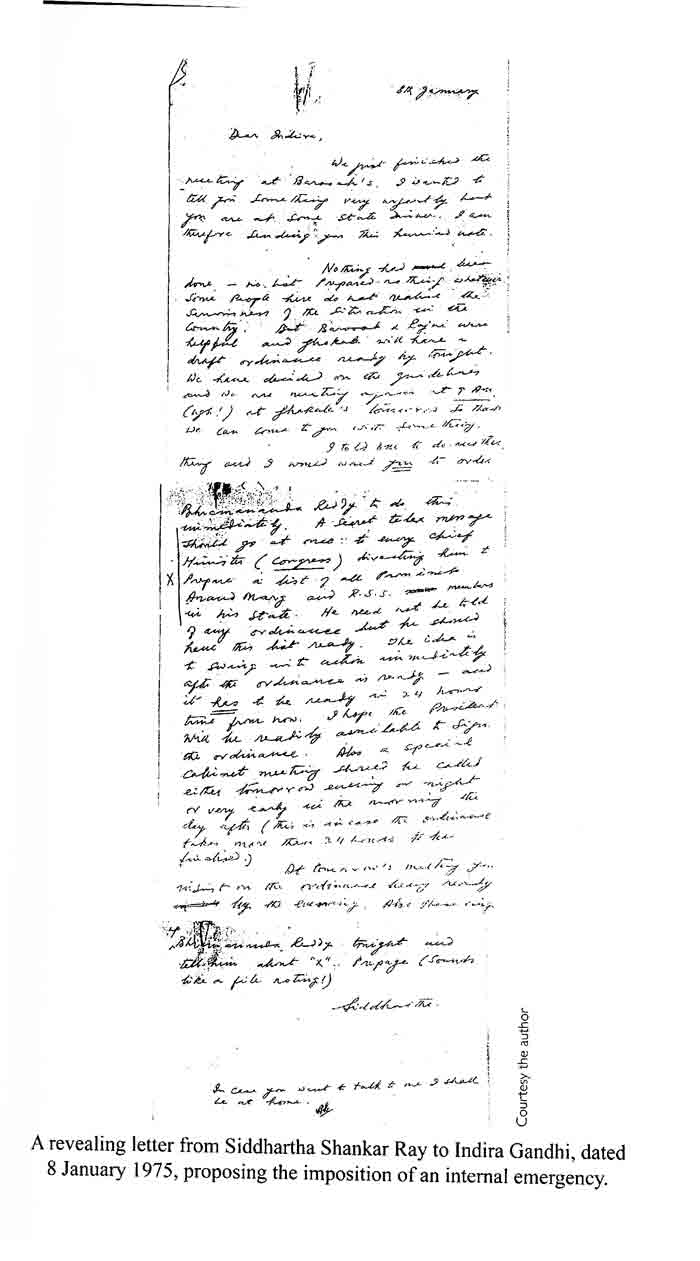 8th January
Dear Indira,
We just finished the
meeting at Barooah's. I wanted to
tell you something very urgently but
you are at some State Dinner. I am
therefore sending you this hurried note.
Nothing had been
done – no list prepared nothing whatever
Some people here do not realise the
seriousness of the situation in the
country. But Barooah & Rajni were
helpful and Gokhale will have a
draft ordinance ready by tonight.
We have decided on the guidelines
and we are meeting again at 9 AM
(ugh!) at Gokhale's tomorrow so that
we can come to you with something.
I told to do another
thing and I would want you to order
Brahmananda Reddy to do this
immediately. A secret telex message
should go at once to every Chief
Minister (Congress) directing him to
X prepare a list of all prominent
Anand Marg and R.S.S. members
in his State. He need not be told
of any ordinance but he should
have this list ready. The idea is
to swing into action immediately
after the ordinance is ready – and
it has to be ready in 24 hours
time from now. I hope the President
will be readily available to sign
the ordinance. Also a special
Cabinet meeting should be called
either tomorrow evening or night
or very early in the morning the
day after (this is in case the ordinance
takes more than 24 hours to be
finalised.)
At tomorrow's meeting you
insist on the ordinance being ready
by the evening. Also please ring
Reddy tonight and
tell him about "X" (sounds
like a file noting!)
Siddhartha
In case you want to talk to me I shall
be at home.
Courtesy the author
A revealing letter from Siddhartha Shankar Ray to Indira Gandhi, dated
8 January 1975, proposing the imposition of an internal emergency.